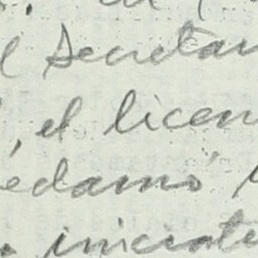 el
l Secretar
, el licen
edamó
iniciati